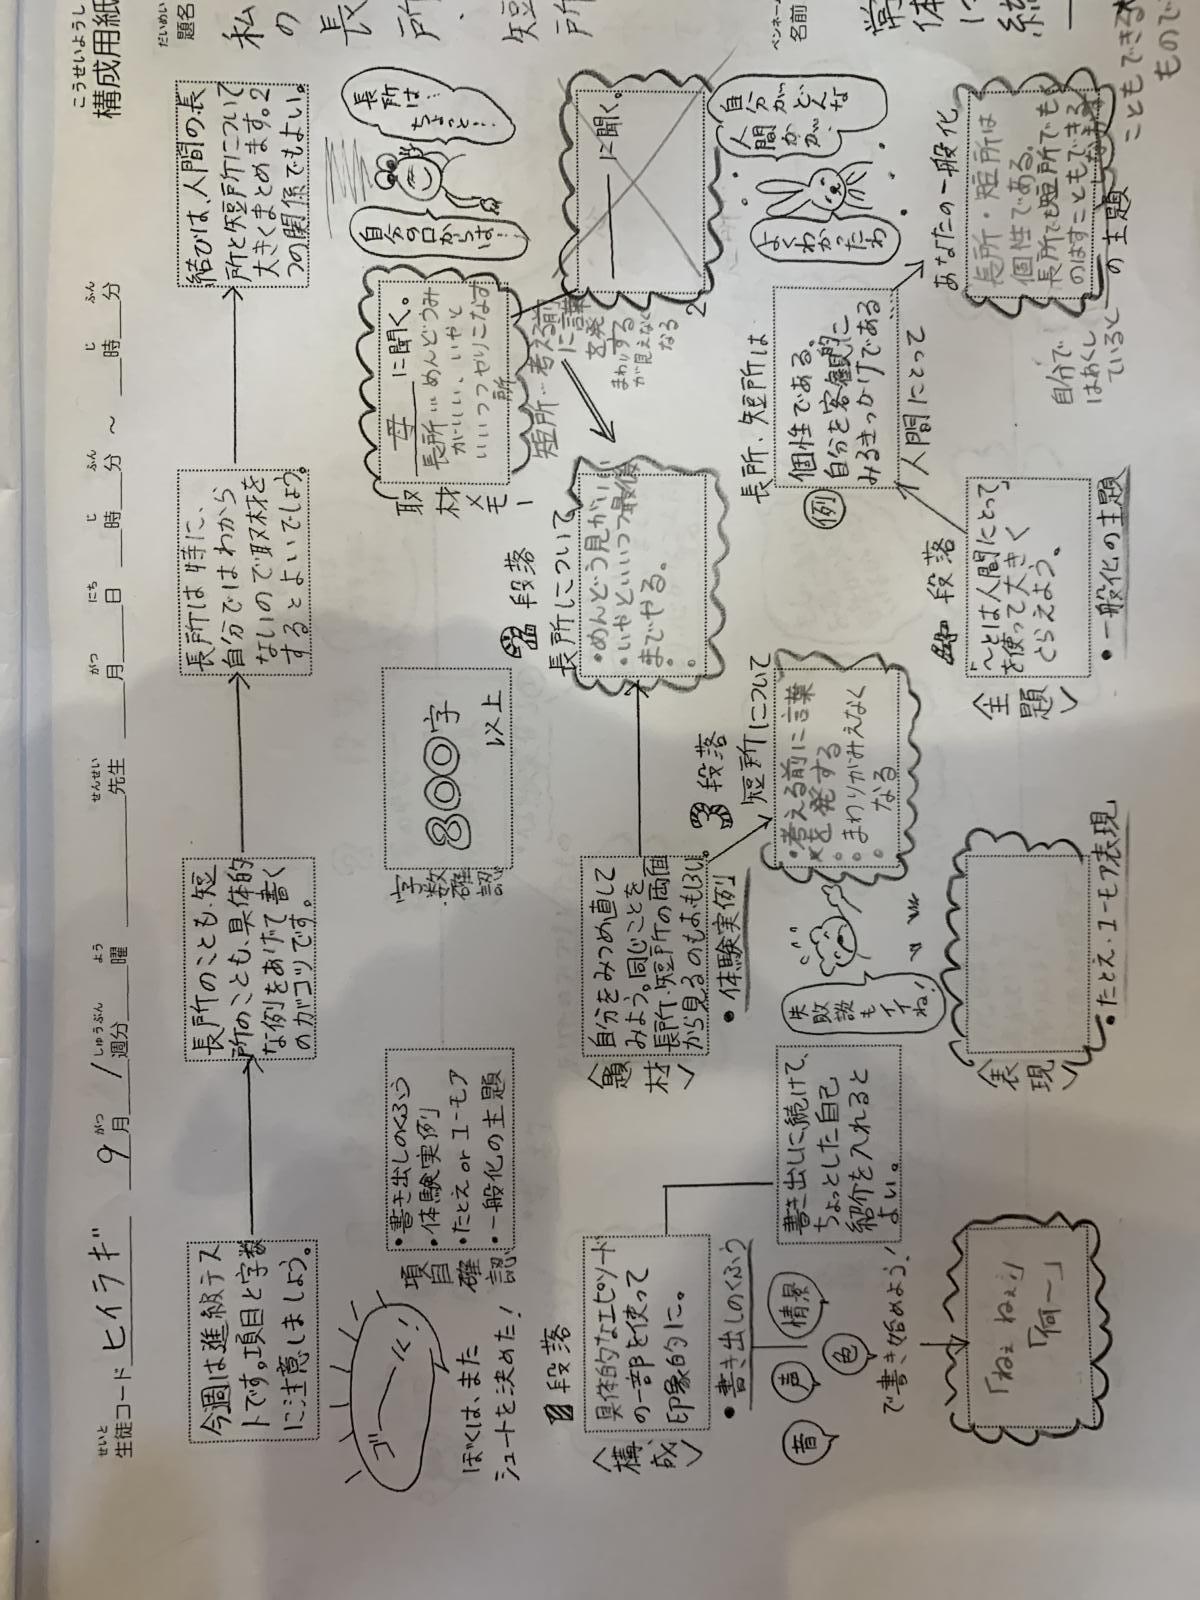 こうせいようし
構成用紙
だいめい
題名
私の長所、短所
ペンネーム
名前
せいと
生徒コード ヒイラギ 9月 1週分 曜 先生 月 日 時 分 ～ 時 分
がつ しゅうぶん よう せんせい がつ にち じ ふん じ ふん
今週は進級テス
トです。項目と字数
に注意しましょう。
長所のことも、短
所のことも、具体的
な例をあげて書く
のがコツです。
長所は特に、
自分ではわから
ないので取材を
するとよいでしょう。
結びは、人間の長
所と短所について
大きくまとめます。2
つの関係でもよい。
ゴーール!
ぼくは、また
シュートを決めた!
項目確認
・書き出しのくふう
・体験実例
・たとえ or ユーモア
・一般化の主題
字数確認
800字
以上
取材メモー
母に聞く。
長所…めんどうみ
がいい、いやと
いいつつやりこなす
所
短所…考える前
に言葉
を発
する
まわり
が見えなく
なる
自分の口からは…
長所は…
ちょっと…
に聞く。
2
段落
〈構成〉
具体的なエピソード
の一部を使って
印象的に。
・書き出しのくふう
音
声
色
情景
で書き始めよう!
「ねぇ ねぇ」
「何～」
書き出しに続けて、
ちょっとした自己
紹介を入れると
よい。
〈題材〉
自分をみつめ直して
みよう。同じことを
長所・短所の両面
から見るのもおもしろい。
・体験実例
段落
長所について
・めんどう見がいい
・いやといいつつ最後
までやる。
段落
短所について
・考える前に言葉
を発する
・まわりがみえなく
なる
失敗談も
イイね!
〈表現〉
・たとえ・ユーモア表現
段落
〈主題〉
「～とは人間にとって」
を使って大きく
とらえよう。
・一般化の主題
人間にとって
長所、短所は
例
個性である。
自分を客観的に
みるきっかけである
…
よくわかったわ
自分がどんな
人間かが、
あなたの一般化
の主題
長所・短所は
個性である。
長所でも短所でも
のばすこともできる
自分で
はあくし
ていると
こともできる
もので